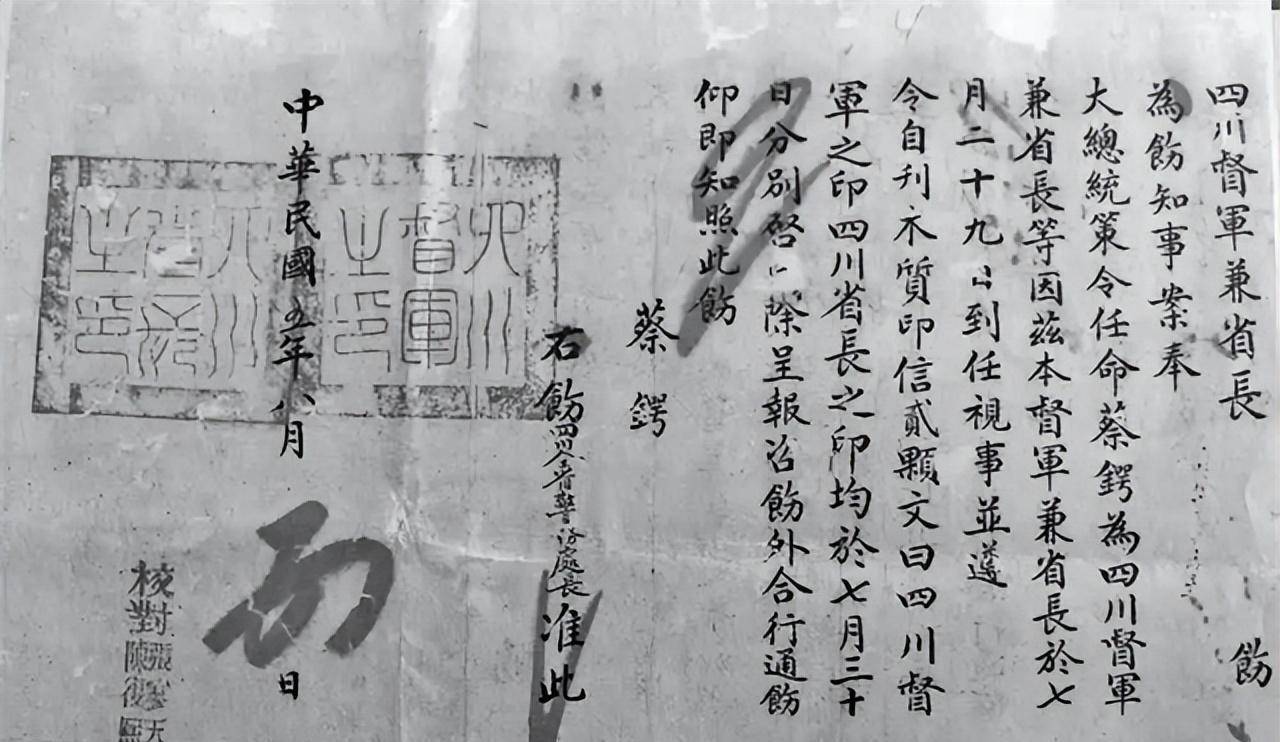 四川督軍兼省長 飭
為飭知事案奉
大總統策令任命蔡鍔為四川督軍
兼省長等因茲本督軍兼省長於七
月二十九日到任視事並遵
令自刊木質印信貳顆文曰四川督
軍之印四川省長之印均於七月三十
日分別啓用除呈報咨飭外合行通飭
仰即知照此飭
蔡鍔
右飭四川全省警務處長准此
四川督軍之印
四川省長之印
中華民國五年八月 日
核對
陳復熙